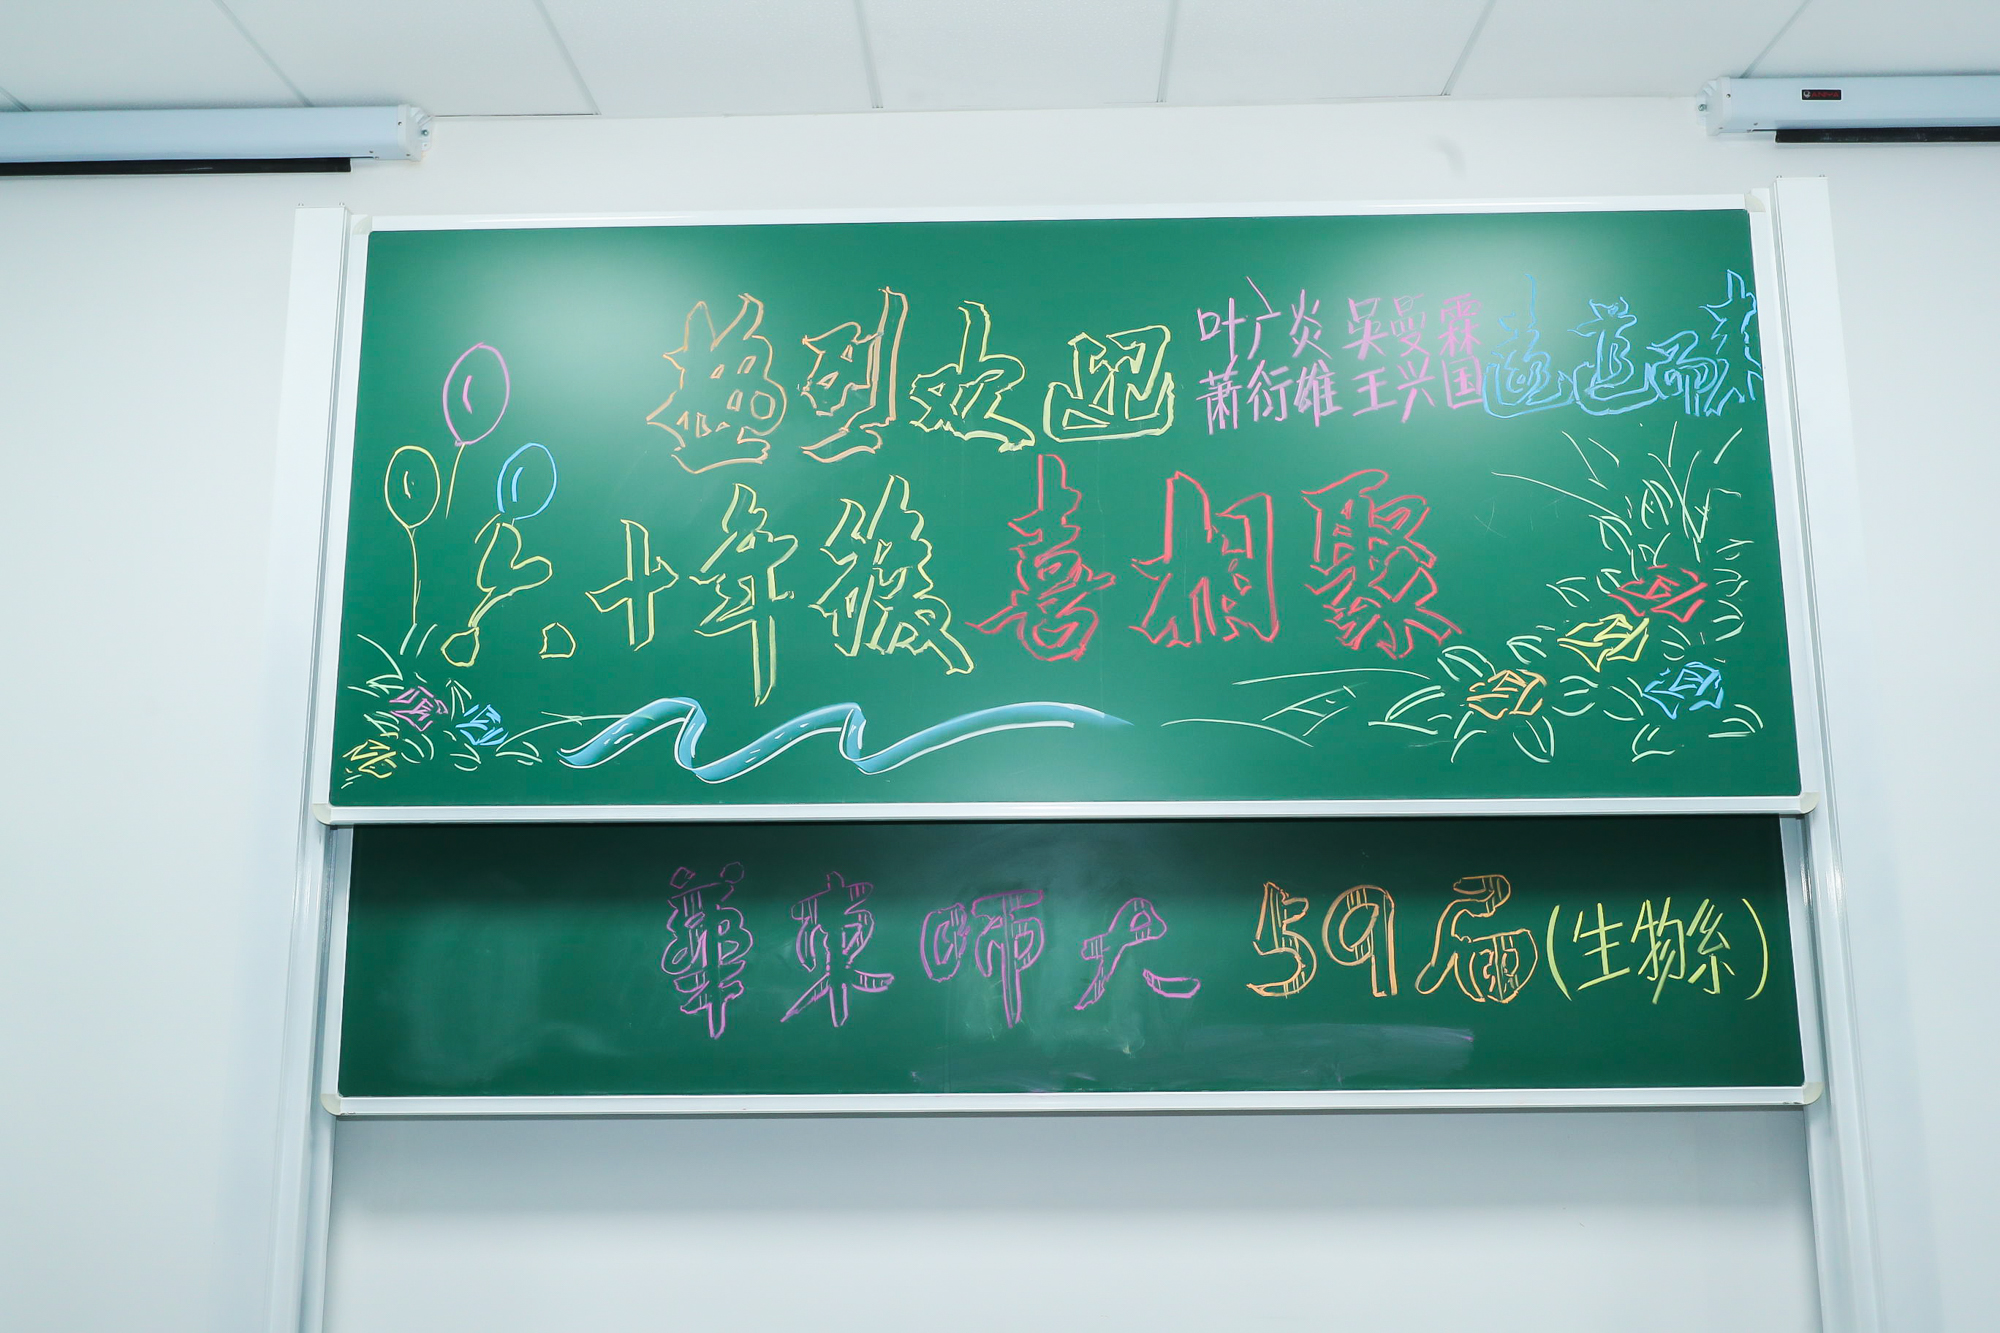 熱烈欢迎 叶广炎 吳曼霖 遠道而来
萧衍雄 王兴国
六十年後喜相聚
華東师大 59届(生物系)